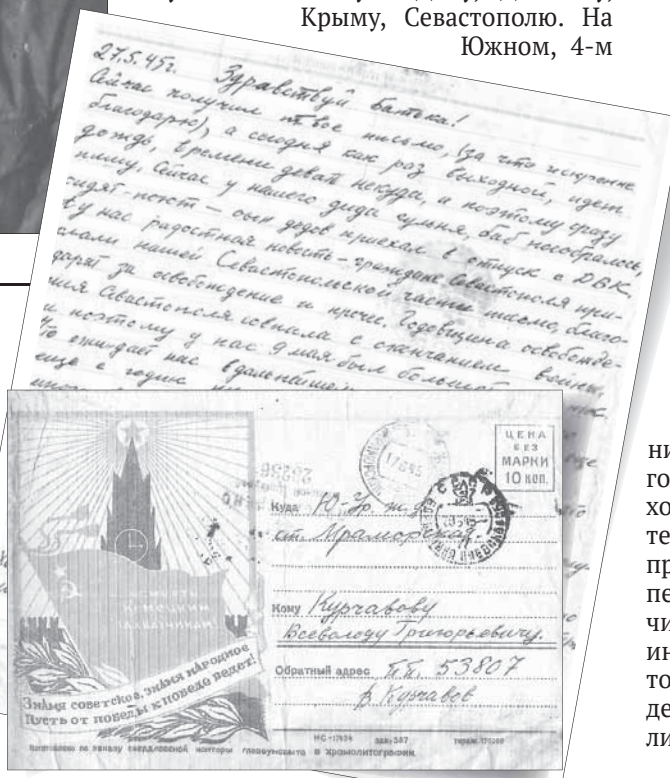 Крыму, Севастополю. На
Южном, 4-м
27.5.45г. Здравствуй батька!
Сейчас получил твое письмо, (за что искренне
благодарю), а сегодня как раз выходной, идет
дождь, времени девать некуда, и поэтому сразу
пишу. Сейчас у нашего дида сульня, баб насобралось,
сидят-поют — сын дедов приехал в отпуск с ДВК.
у нас радостная новость - граждане Севастополя при-
слали нашей Севастопольской части письмо, благо-
дарят за освобождение и прочее. Годовщина освобожде-
ния Севастополя совпала с окончанием войны,
и поэтому у нас 9 мая был большой
ожидает нас в дальнейшем
еще с годик
еще
ЦЕНА
БЕЗ
МАРКИ
10 КОП.
Куда Ю. Ур. ж. д.
ст. Мраморская
Кому Курчавову
Всеволоду Григорьевичу.
Обратный адрес п.п. 53807
Курчавов
СМЕРТЬ
НЕМЕЦКИМ
Знамя советское, знамя народное
Пусть от победы к победе ведет!
Изготовлено по заказу свердловской конторы главунсбыта в хромолитографии.
НС-17434 зак. 387
ни
го
хо
те
пр
пе
чи
ин
то
де
ли